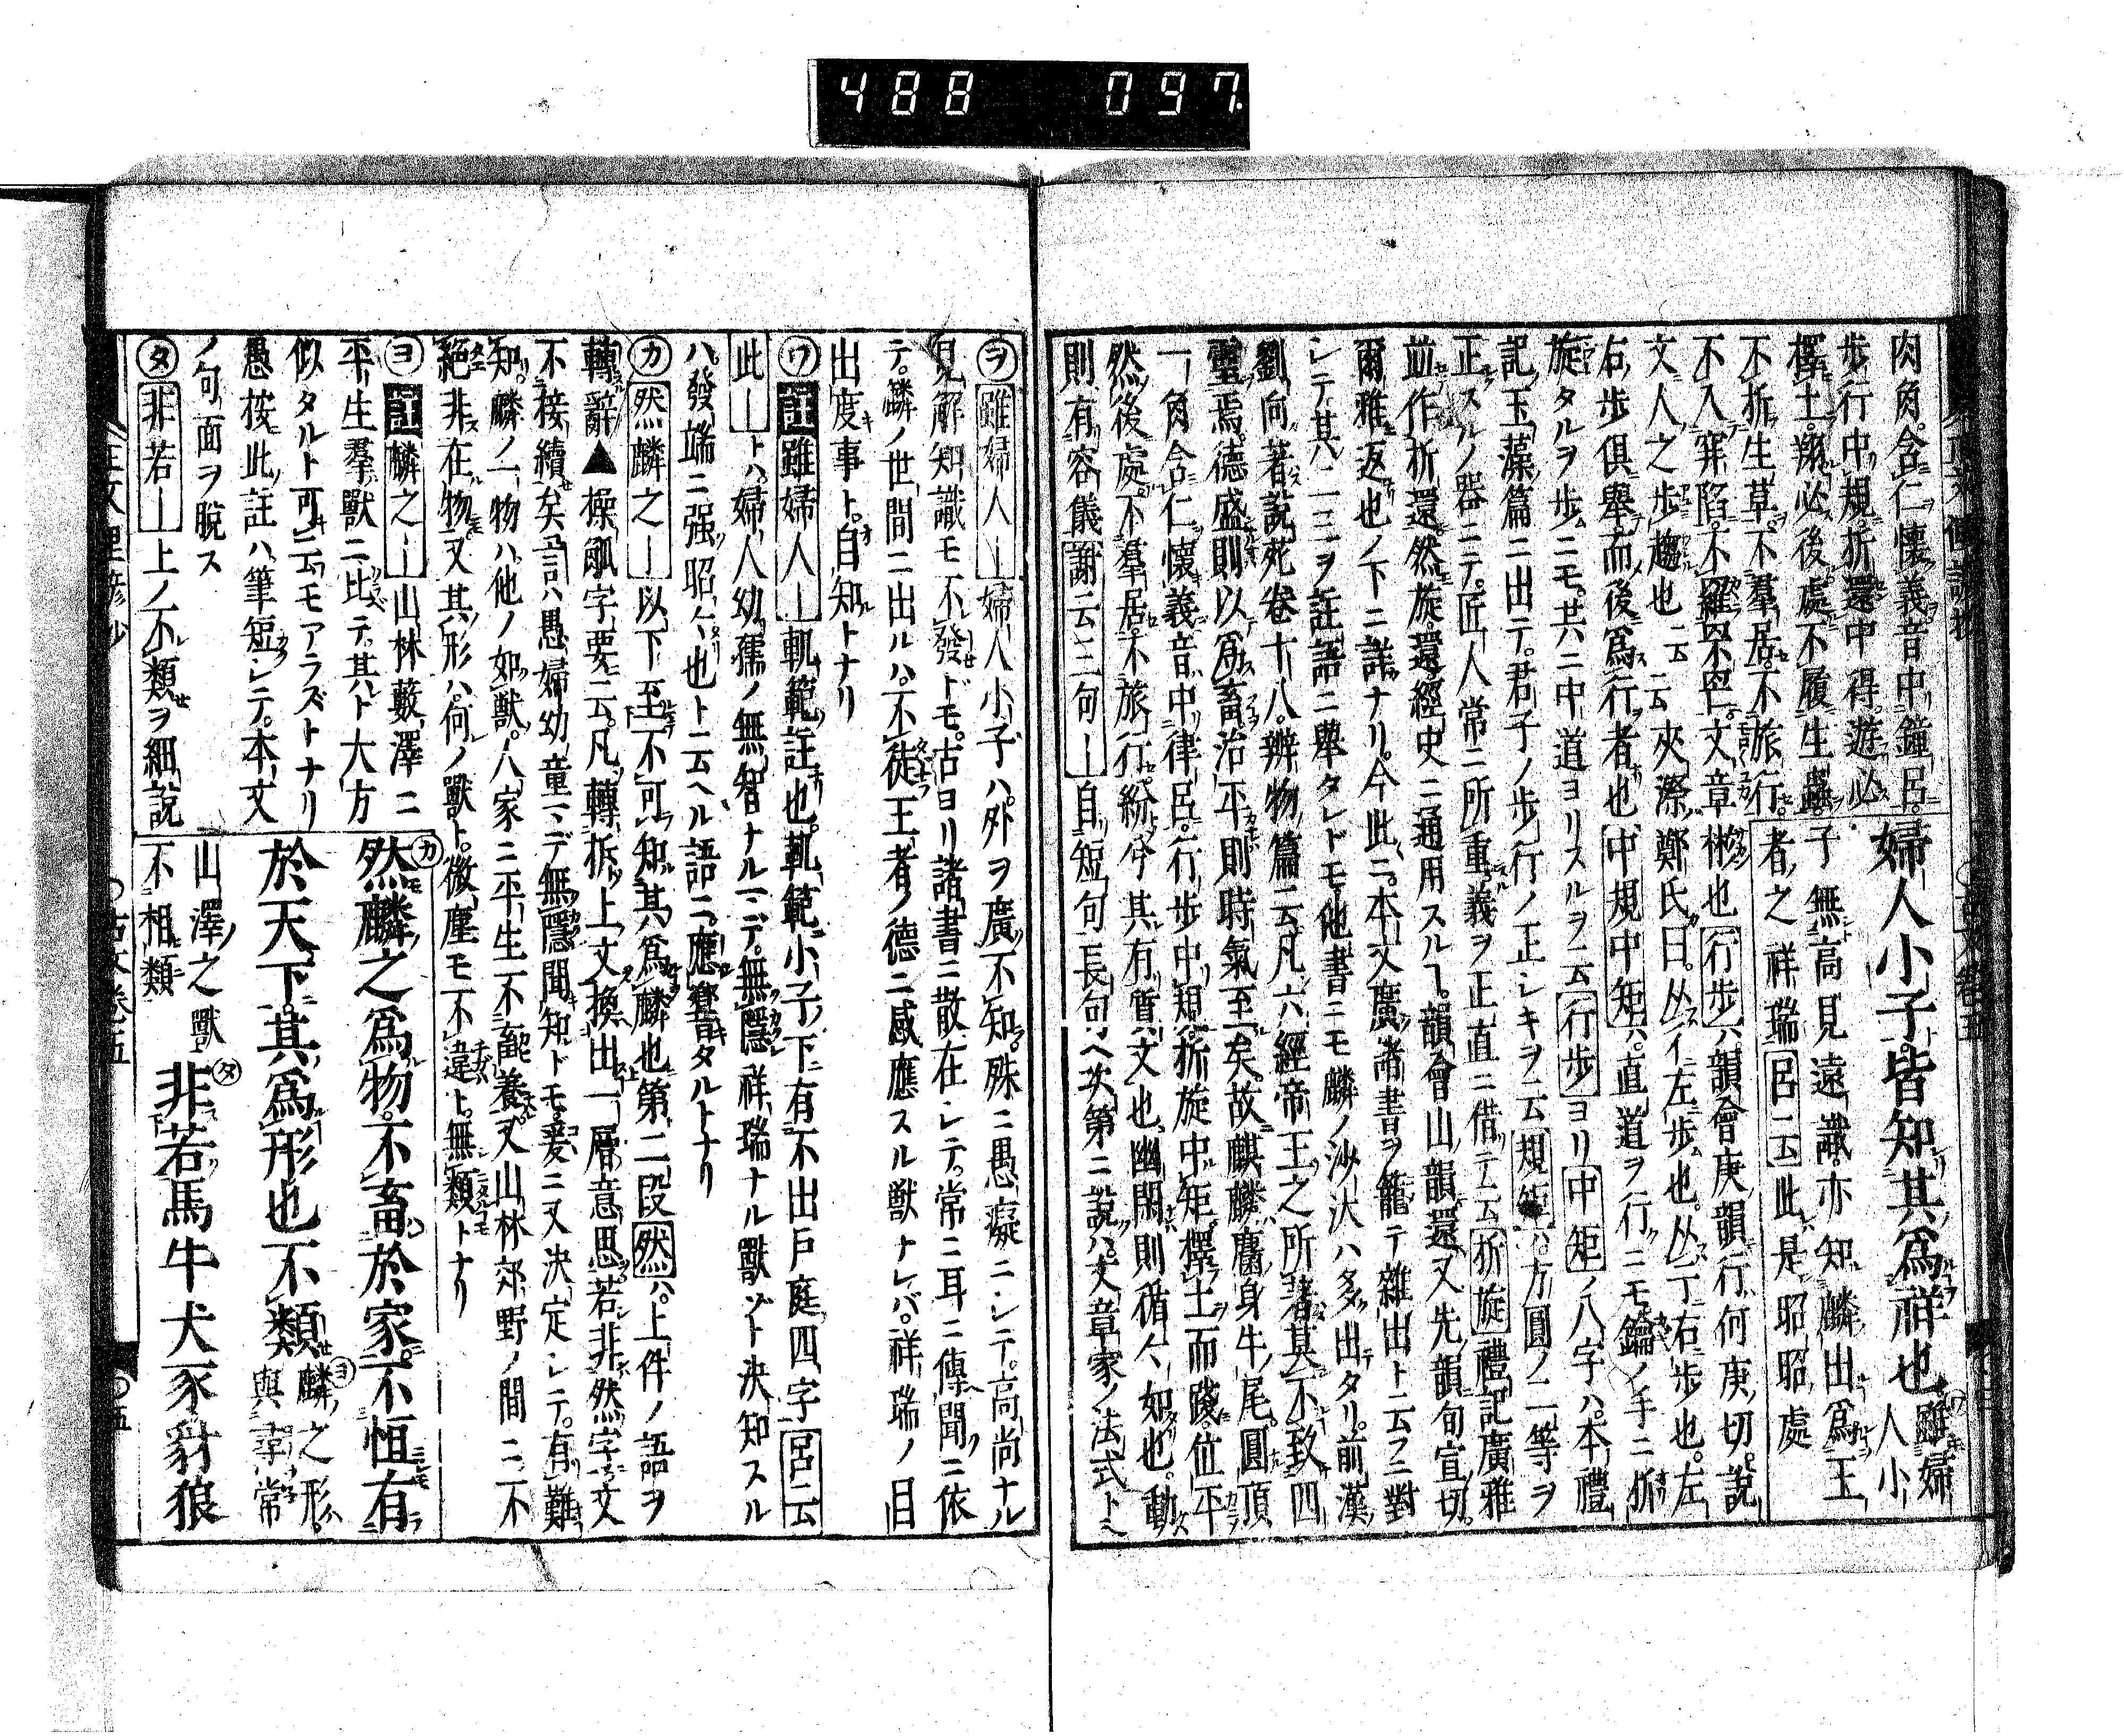 488 097
肉角含仁懷義音中鐘呂
歩行中規折還中得遊必
擇土翔必後處不履生蟲
不折生草不羣居不旅行
不入穽陷不羅罘罔文章
婦人小子皆知其爲祥也
雖婦人小
子無高見遠識亦知麟出爲王
者之祥瑞呂云此是昭昭處
彬也行歩ハ韻會庚韻行何庚切說
文人之歩趨也云云夾漈鄭氏曰彳左歩也亍右歩也左
右歩俱舉而後爲行者也中規中矩ハ直道ヲ行ニモ鑰ノ手ニ折
旋タルヲ歩ニモ其ニ中道ヨリスルヲ云行歩ヨリ中矩ノ八字ハ本禮
記玉藻篇ニ出テ君子ノ歩行ノ正シキヲ云規矩ハ方圓ノ二等ヲ
正スルノ器ニテ匠人常ニ所重義ヲ正直ニ借テ云折旋禮記廣雅
並作折還然旋還經史ニ通用スルヿ韻會山韻還又先韻旬宣切
爾雅返也ノ下ニ詳ナリ今此ニ本文廣諸書ヲ籠テ雜出ト云フニ對
シテ其一二ヲ註語ニ舉タレドモ他書ニモ麟ノ沙汰ハ多出タリ前漢
劉向著說苑卷十八辨物篇ニ云凡六經帝王之所著其不致四
靈焉德盛則以爲畜治平則時氣至矣故麒麟麕身牛尾圓頂
一角含仁懷義音中律呂行歩中規折旋中矩擇土而踐位平
然後處不羣居不旅行紛兮其有質文也幽閑則循々如也動
則有容儀謝云三句自短句長句ヘ次第ニ說ハ文章家ノ法式ト
ヲ雖婦人婦人小子ハ外ヲ廣不知殊ニ愚癡ニシテ高尚ナル
見解知識モ不發ドモ古ヨリ諸書ニ散在シテ常ニ耳ニ傳聞ニ依
テ麟ノ世間ニ出ルハ不徒王者ノ德ニ感應スル獣ナレバ祥瑞ノ目
出度事ト自知トナリ
ワ註雖婦人軌範註也軌範小子下有不出戸庭四字呂云
此トハ婦人幼孺ノ無智ナルマデ無隱祥瑞ナル獸ゾト決知スル
ハ發端ニ强昭々也ト云ヘル語ニ應響タルトナリ
カ然麟之以下至不可知其爲麟也第二段然ハ上件ノ語ヲ
轉辭▲操觚字要ニ云凡轉折上文換出一層意思若非然字文
不接續矣言ハ愚婦幼童マデ無隱聞知ドモ爰ニ又決定シテ有難
知麟ノ一物ハ他ノ如獸人家ニ平生不畜養又山林郊野ノ間ニ不
絕非在物又其形ハ何ノ獸ト微塵モ不違ト無類トナリ
ヨ註麟之山林藪澤ニ
平生羣獸ニ比テ其ト大方
似タルト可云モアラズトナリ
愚按此註ハ筆短シテ本文
ノ句面ヲ脫ス
タ非若上ノ不類ヲ細說
カ然麟之爲物不畜於家不恒有
於天下其爲形也不類
ヨ麟之形
與尋常
山澤之獸
不相類
タ非若馬牛犬豕豺狼